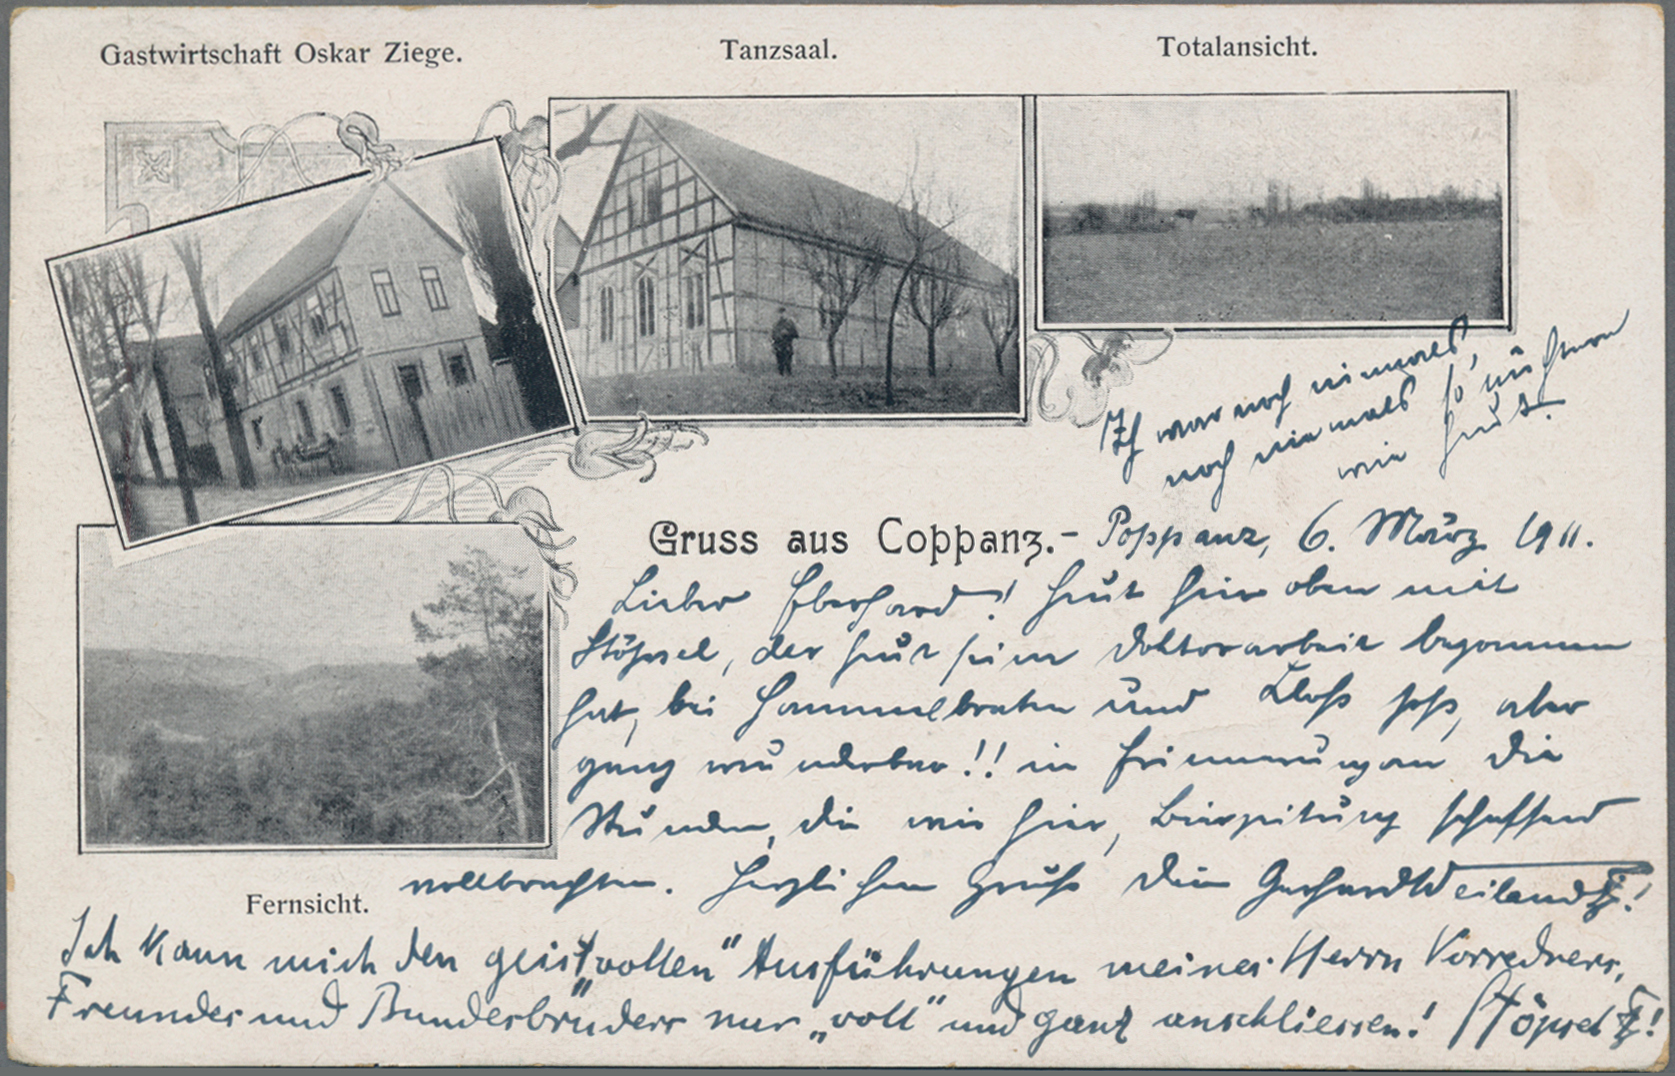 Gastwirtschaft Oskar Ziege.
Tanzsaal.
Totalansicht.
Ich war noch niemals,
noch niemals so nüchtern
wie heut.
Gruss aus Coppanz. – Poppanz, 6. März 1911.
Lieber Eberhard! Heut hier oben mit
Stöpsel, der heut seine Doktorarbeit begonnen
hat, bei Hammelbraten und Kloß, aber
ganz wunderbar!! in Erinnerung an die
Stunden, die wir hier, Bierzeitung schaffend
vollbrachten. Herzlichen Gruß Dein Gerhard Weiland!
Fernsicht.
Ich kann mich den geist"vollen" Ausführungen meines Herrn Vorredners,
Freundes und Bundesbruders nur „voll" und ganz anschliessen! Stöpsel!